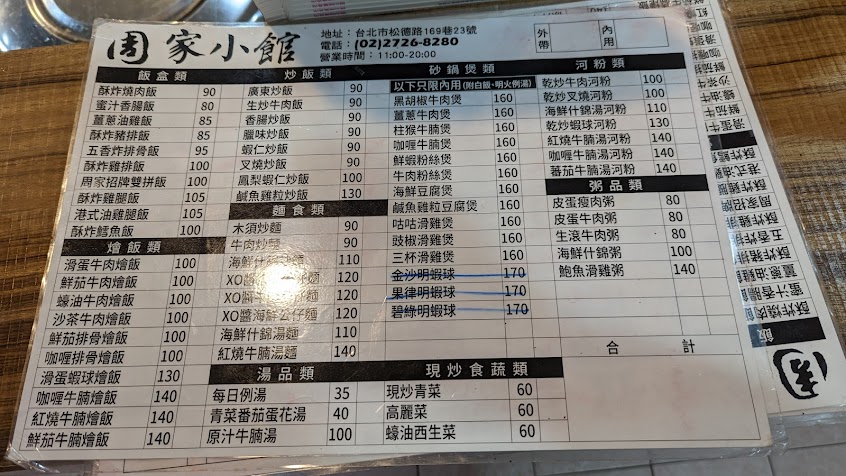 周家小館
地址：台北市松德路169巷23號
電話：(02)2726-8280
營業時間：11:00-20:00
外帶
內用
飯盒類
酥炸燒肉飯 90
蜜汁香腸飯 80
薑蔥油雞飯 85
酥炸豬排飯 95
五香炸排骨飯 95
酥炸雞排飯 100
周家招牌雙拼飯 100
酥炸雞腿飯 105
港式油雞腿飯 105
酥炸鱈魚飯 100
燴飯類
滑蛋牛肉燴飯 100
鮮茄牛肉燴飯 100
蠔油牛肉燴飯 100
沙茶牛肉燴飯 100
鮮茄排骨燴飯 100
咖喱排骨燴飯 100
滑蛋蝦球燴飯 130
咖喱牛腩燴飯 140
紅燒牛腩燴飯 140
鮮茄牛腩燴飯 140
炒飯類
廣東炒飯 90
生炒牛肉飯 90
香腸炒飯 90
臘味炒飯 90
蝦仁炒飯 90
叉燒炒飯 90
鳳梨蝦仁炒飯 100
鹹魚雞粒炒飯 130
麵食類
木須炒麵 90
牛肉炒麵 90
海鮮什錦炒麵 110
XO醬 120
XO醬 120
XO醬海鮮公仔麵 120
海鮮什錦湯麵 110
紅燒牛腩湯麵 140
湯品類
每日例湯 35
青菜番茄蛋花湯 40
原汁牛腩湯 100
砂鍋煲類
以下只限內用(附白飯、明火例湯)
黑胡椒牛肉煲 160
薑蔥牛肉煲 160
柱猴牛腩煲 160
咖喱牛腩煲 160
鮮蝦粉絲煲 160
牛肉粉絲煲 160
海鮮豆腐煲 160
鹹魚雞粒豆腐煲 160
咕咕滑雞煲 160
豉椒滑雞煲 160
三杯滑雞煲 160
金沙明蝦球 170
果律明蝦球 170
碧綠明蝦球 170
現炒食蔬類
現炒青菜 60
高麗菜 60
蠔油西生菜 60
河粉類
乾炒牛肉河粉 100
乾炒叉燒河粉 100
海鮮什錦湯河粉 110
乾炒蝦球河粉 130
紅燒牛腩湯河粉 140
咖喱牛腩湯河粉 140
蕃茄牛腩湯河粉 140
粥品類
皮蛋瘦肉粥 80
皮蛋牛肉粥 80
生滾牛肉粥 80
海鮮什錦粥 100
鮑魚滑雞粥 140
合計